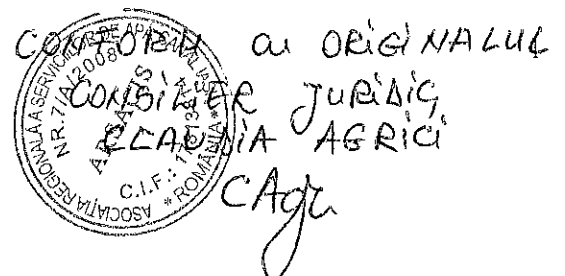 CONFORM cu ORiGiNALUL
CONSiLiER JURiDiC
CLAUDiA AGRiCi
CAgr
ASOCIAȚIA REGIONALĂ A SERVICIILOR DE APĂ CANAL IAȘI
* ROMÂNIA *
NR. 7/A/2008
ARSACIS
C.I.F.: